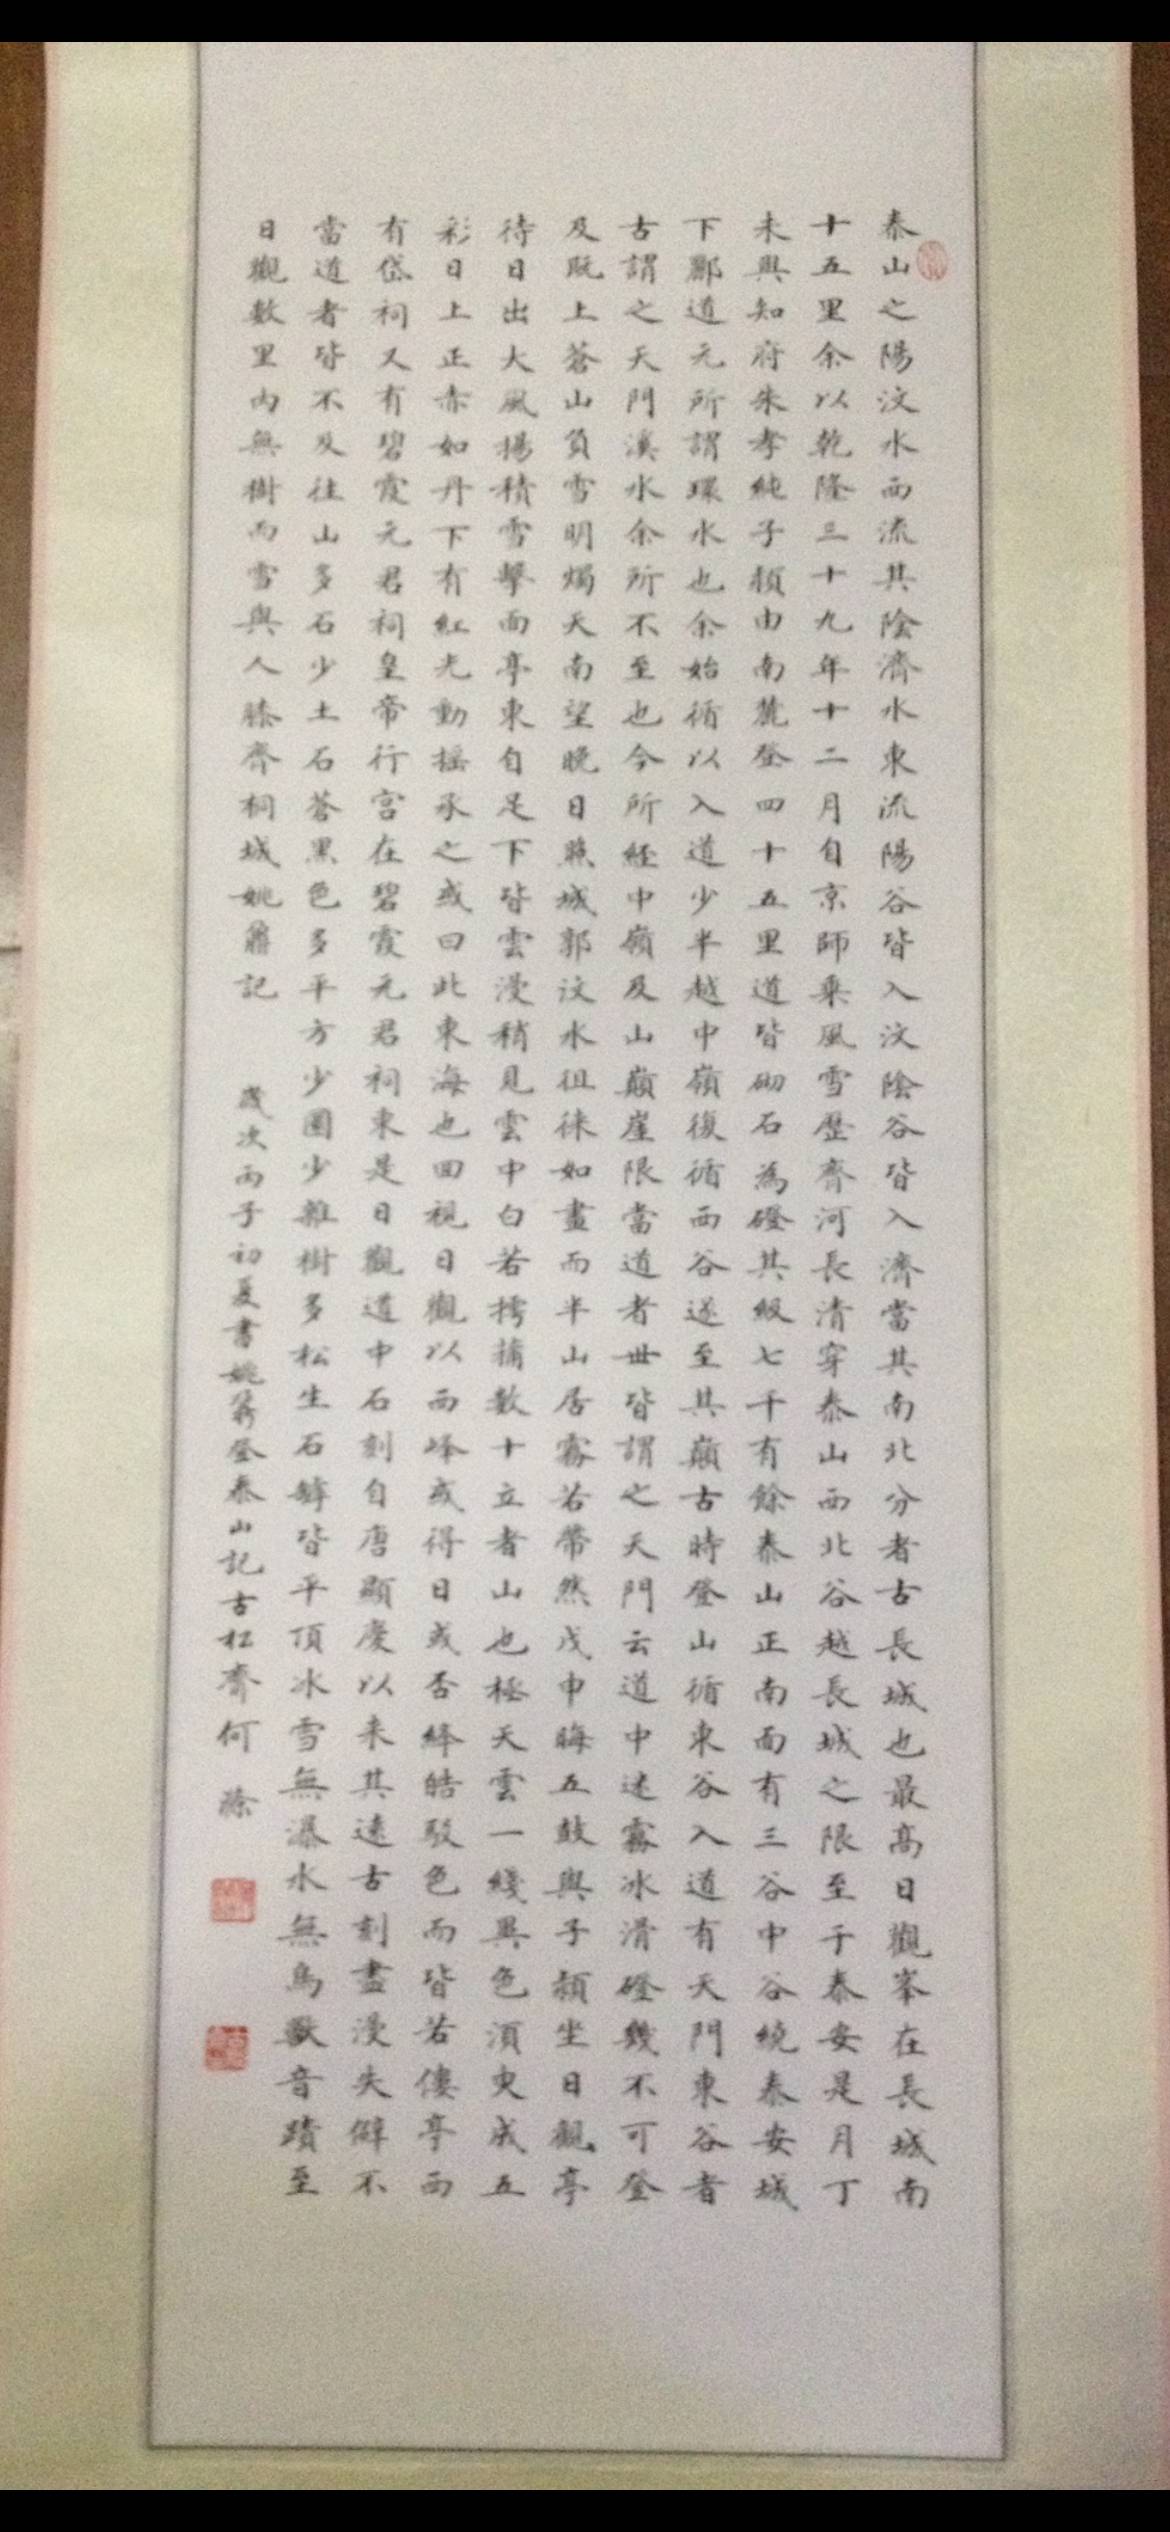 泰山之陽汶水西流其陰濟水東流陽谷皆入汶陰谷皆入濟當其南北分者古長城也最高日觀峯在長城南
十五里余以乾隆三十九年十二月自京師乘風雪歷齊河長清穿泰山西北谷越長城之限至于泰安是月丁
未與知府朱孝純子潁由南麓登四十五里道皆砌石為磴其級七千有餘泰山正南面有三谷中谷繞泰安城
下酈道元所謂環水也余始循以入道少半越中嶺復循西谷遂至其巔古時登山循東谷入道有天門東谷者
古謂之天門溪水余所不至也今所經中嶺及山巔崖限當道者世皆謂之天門云道中迷霧冰滑磴幾不可登
及既上蒼山負雪明燭天南望晚日照城郭汶水徂徠如畫而半山居霧若帶然戊申晦五鼓與子潁坐日觀亭
待日出大風揚積雪擊面亭東自足下皆雲漫稍見雲中白若摴蒱數十立者山也極天雲一綫異色須臾成五
彩日上正赤如丹下有紅光動搖承之或曰此東海也回視日觀以西峰或得日或否絳皓駁色而皆若僂亭西
有岱祠又有碧霞元君祠皇帝行宮在碧霞元君祠東是日觀道中石刻自唐顯慶以來其遠古刻盡漫失僻不
當道者皆不及往山多石少土石蒼黑色多平方少圜少雜樹多松生石罅皆平頂冰雪無瀑水無鳥獸音蹟至
日觀數里內無樹而雪與人膝齊桐城姚鼐記 歲次丙子初夏書姚鼐登泰山記古松齋何